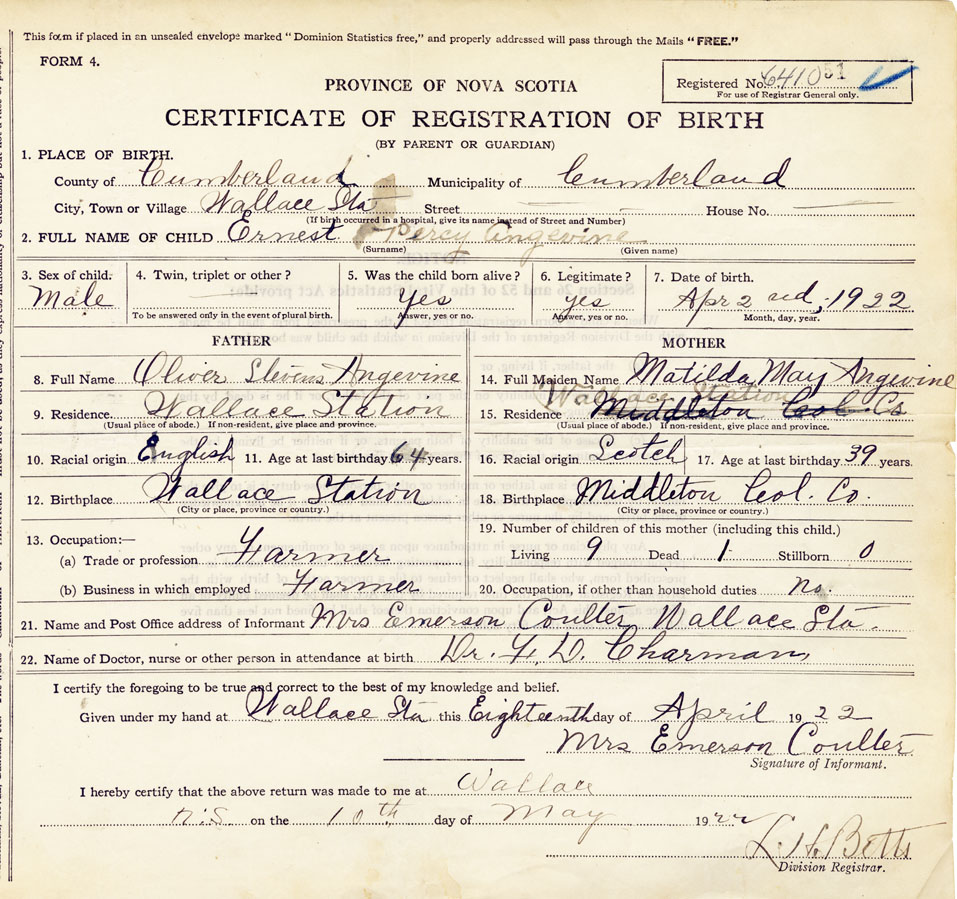 This form if placed in an unsealed envelope marked "Dominion Statistics free," and properly addressed will pass through the Mails "FREE."
FORM 4.
PROVINCE OF NOVA SCOTIA
Registered No. 641051
For use of Registrar General only.
CERTIFICATE OF REGISTRATION OF BIRTH
(BY PARENT OR GUARDIAN)
1. PLACE OF BIRTH.
County of Cumberland Municipality of Cumberland
City, Town or Village Wallace Sta Street House No.
(If birth occurred in a hospital, give its name instead of Street and Number)
2. FULL NAME OF CHILD Ernest Percy Angevine
(Surname) (Given name)
3. Sex of child. 4. Twin, triplet or other? 5. Was the child born alive? 6. Legitimate? 7. Date of birth.
Male Yes yes Apr 2nd, 1922
To be answered only in the event of plural birth. Answer, yes or no. Answer, yes or no. Month, day, year.
FATHER MOTHER
8. Full Name Oliver Stevens Angevine 14. Full Maiden Name Matilda May Angevine
Wallace Station
9. Residence. Wallace Station 15. Residence Middleton Col. Co
(Usual place of abode.) If non-resident, give place and province. (Usual place of abode.) If non-resident, give place and province.
10. Racial origin English 11. Age at last birthday 64 years. 16. Racial origin Scotch 17. Age at last birthday 39 years.
12. Birthplace Wallace Station 18. Birthplace Middleton Col. Co.
(City or place, province or country.) (City or place, province or country.)
13. Occupation:— 19. Number of children of this mother (including this child.)
(a) Trade or profession Farmer Living 9 Dead 1 Stillborn 0
(b) Business in which employed Farmer 20. Occupation, if other than household duties no.
21. Name and Post Office address of Informant Mrs Emerson Coulter Wallace Sta.
22. Name of Doctor, nurse or other person in attendance at birth Dr. F. D. Charman
I certify the foregoing to be true and correct to the best of my knowledge and belief.
Given under my hand at Wallace Sta this Eighteenth day of April 1922
Mrs Emerson Coulter
Signature of Informant.
I hereby certify that the above return was made to me at Wallace
N.S. on the 10th day of May 1922
L. H. Betts
Division Registrar.